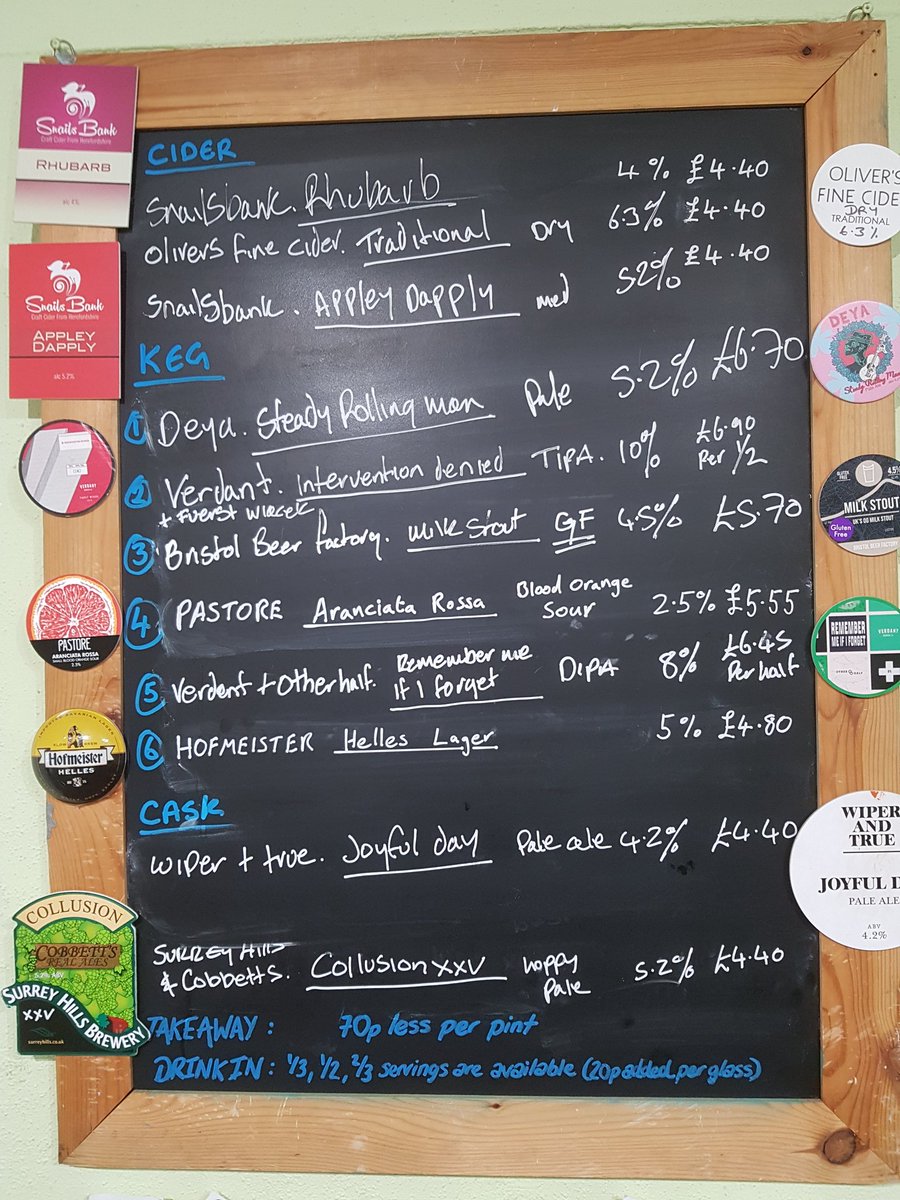 CIDER
Snailsbank. Rhubarb 4% £4.40
Olivers fine cider. Traditional Dry 6.3% £4.40
Snailsbank. Appley Dapply med 5.2% £4.40
KEG
1 Deya. Steady Rolling man Pale 5.2% £6.70
2 Verdant. Intervention denied TIPA. 10% £6.90 Per 1/2
+ Fuerst Wiacek
3 Bristol Beer factory. Milk Stout GF 4.5% £5.70
4 PASTORE Aranciata Rossa Blood Orange Sour 2.5% £5.55
5 Verdent + Otherhalf. Remember me if I forget DIPA 8% £6.45 Per half
6 HOFMEISTER Helles Lager 5% £4.80
CASK
Wiper + true. Joyful day Pale ale 4.2% £4.40
SURREY HILLS & Cobbetts. Collusion XXV hoppy Pale 5.2% £4.40
TAKEAWAY: 70p less per pint
DRINK IN: 1/3, 1/2, 2/3 servings are available (20p added per glass)
Snails Bank
Craft Cider From Herefordshire
RHUBARB
alc 4%
Snails Bank
Craft Cider From Herefordshire
APPLEY
DAPPLY
alc 5.2%
PASTORE
ARANCIATA ROSSA
SMALL BLOOD ORANGE SOUR
2.5%
Hofmeister
HELLES
COLLUSION
COBBETT'S
REAL ALES
5.2% ABV
SURREY HILLS BREWERY
XXV
surreyhills.co.uk
OLIVER'S
FINE CIDER
DRY
TRADITIONAL
6.3%
DEYA
Steady Rolling Man
GLUTEN FREE
4.5%
MILK STOUT
Gluten Free
BRISTOL BEER FACTORY
REMEMBER
ME IF I FORGET
VERDANT
OTHER HALF
WIPER
AND
TRUE
JOYFUL D
PALE ALE
ABV
4.2%